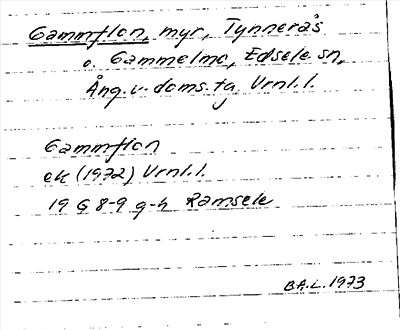 Gammflon, myr, Tynnerås
o. Gammelmo, Edsele sn,
Ång. v. doms. tg Vrnl. l.
Gammflon
ek (1972) Vrnl. l.
19 G 8-9 g-h Ramsele
B.A.L. 1973